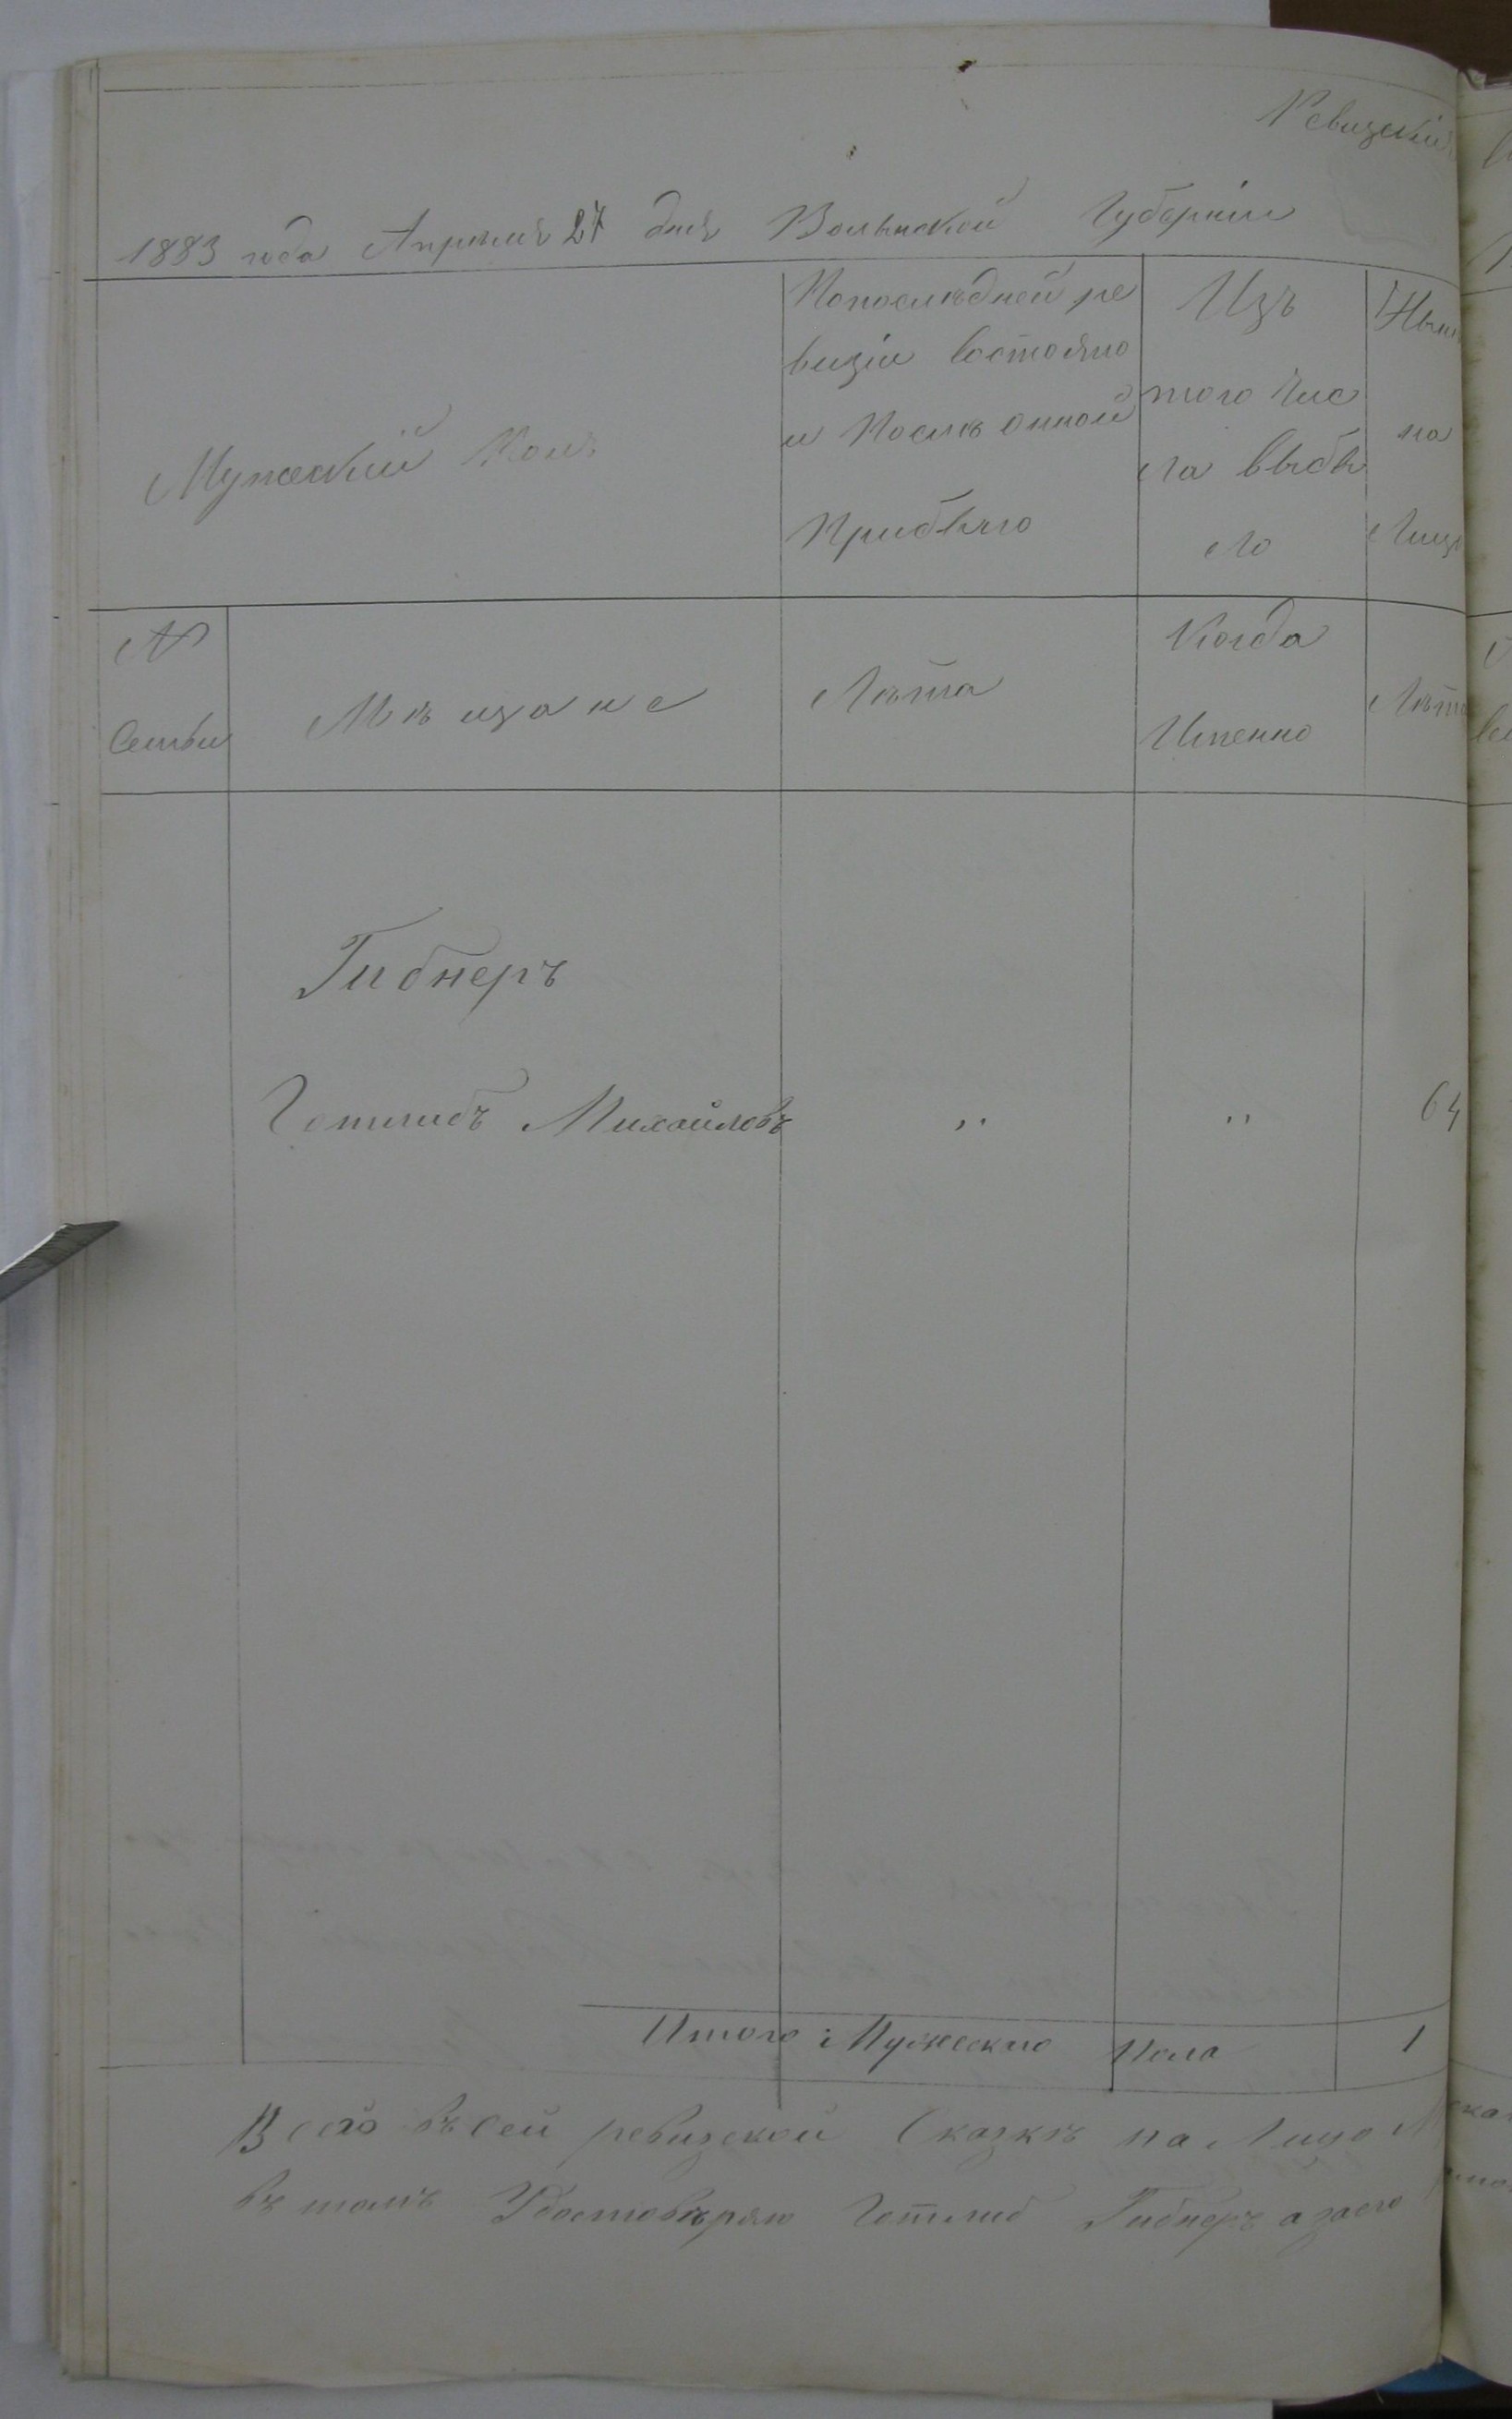 Ревизскій
1883 года Апрѣля 27 дня Волынской Губерніи
Мужескій Полъ
Попослѣдней ре
визіи состояло
и Послѣ онной
Прибыло
Изъ
того Чис
ла выбы
ло
Нын
на
Лицо
№
Семьи
Мѣщане
Лѣта
Когда
Именно
Лѣта
Гибнеръ
Готлибъ Михайловъ " " 64
Итого: Мужеско Пола 1
Всего въ сей ревизской Сказкѣ на Лицо
въ томъ Удостовѣряю Готлиб Гибнеръ а заего